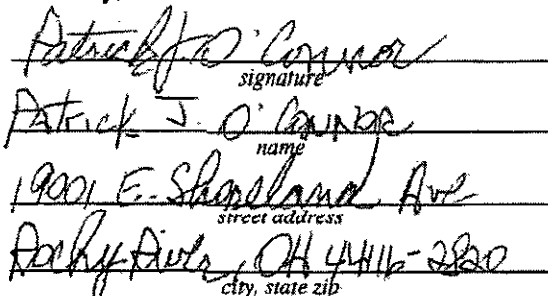 Patrick J. O'Connor
signature
Patrick J. O'Connor
name
19001 E. Shoreland Ave
street address
Rocky River, OH 44116-2820
city, state zip